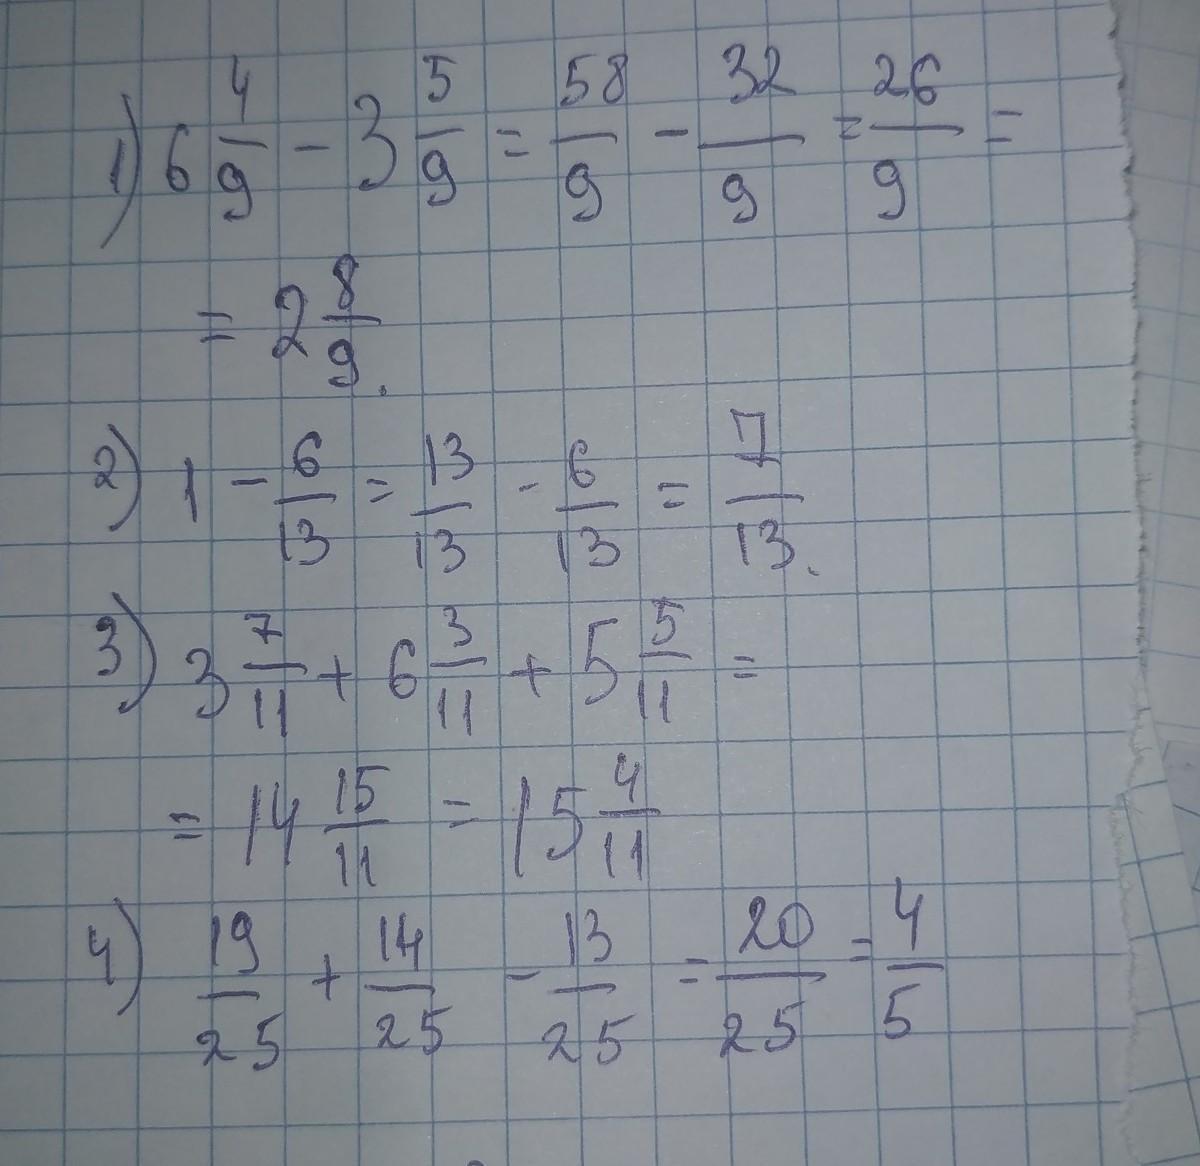 1) 6 4/9 - 3 5/9 = 58/9 - 32/9 = 26/9 =
= 2 8/9.
2) 1 - 6/13 = 13/13 - 6/13 = 7/13.
3) 3 7/11 + 6 3/11 + 5 5/11 =
= 14 15/11 = 15 4/11
4) 19/25 + 14/25 - 13/25 = 20/25 = 4/5